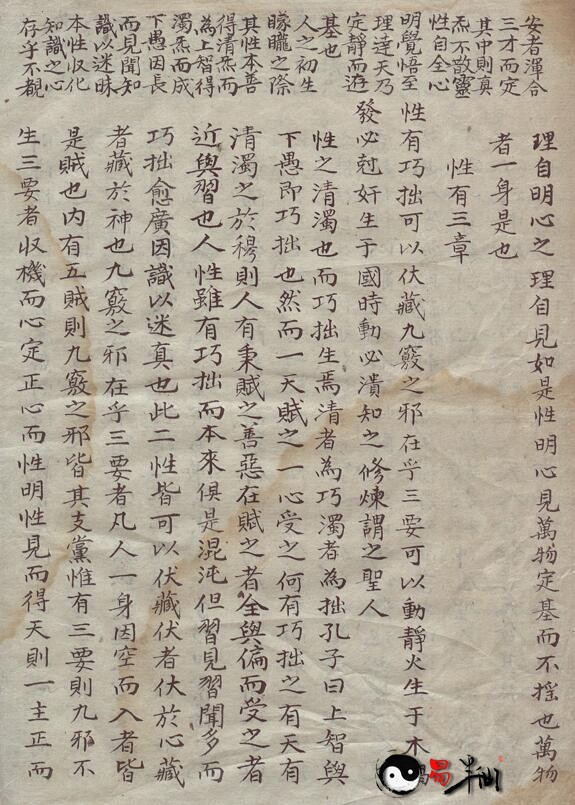 安者渾合
三才而定
其中則真
炁不散靈
性自全心
明覺悟至
理達天乃
定靜而逰
基也
人之初生
矇矓之際
其性本善
得清炁而
為上智得
濁炁而成
下愚因長
而見聞知
識以迷昧
本性収化
知識之心
存乎不覩
理自明心之理自見如是性明心見萬物定基而不搖也萬物
者一身是也
性有三章
性有巧拙可以伏藏九竅之邪在乎三要可以動靜火生于木
發必尅奸生于國時動必潰知之修煉謂之聖人
性之清濁也而巧拙生焉清者為巧濁者為拙孔子曰上智與
下愚即巧拙也然而一天賦之一心受之何有巧拙之有天有
清濁之於穆則人有秉賦之善惡在賦之者全與偏而受之者
近與習也人性雖有巧拙而本來俱是混沌但習見習聞多而
巧拙愈廣因識以迷真也此二性皆可以伏藏伏者伏於心藏
者藏於神也九竅之邪在乎三要者凡人一身因空而入者皆
是賊也内有五賊則九竅之邪皆其支黨惟有三要則九邪不
生三要者収機而心定正心而性明性見而得天則一主正而